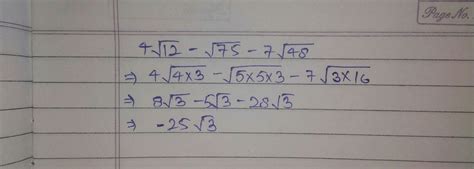 Page No.
4√12 - √75 - 7√48
⇒ 4√4×3 - √5×5×3 - 7√3×16
⇒ 8√3 - 5√3 - 28√3
⇒ -25√3